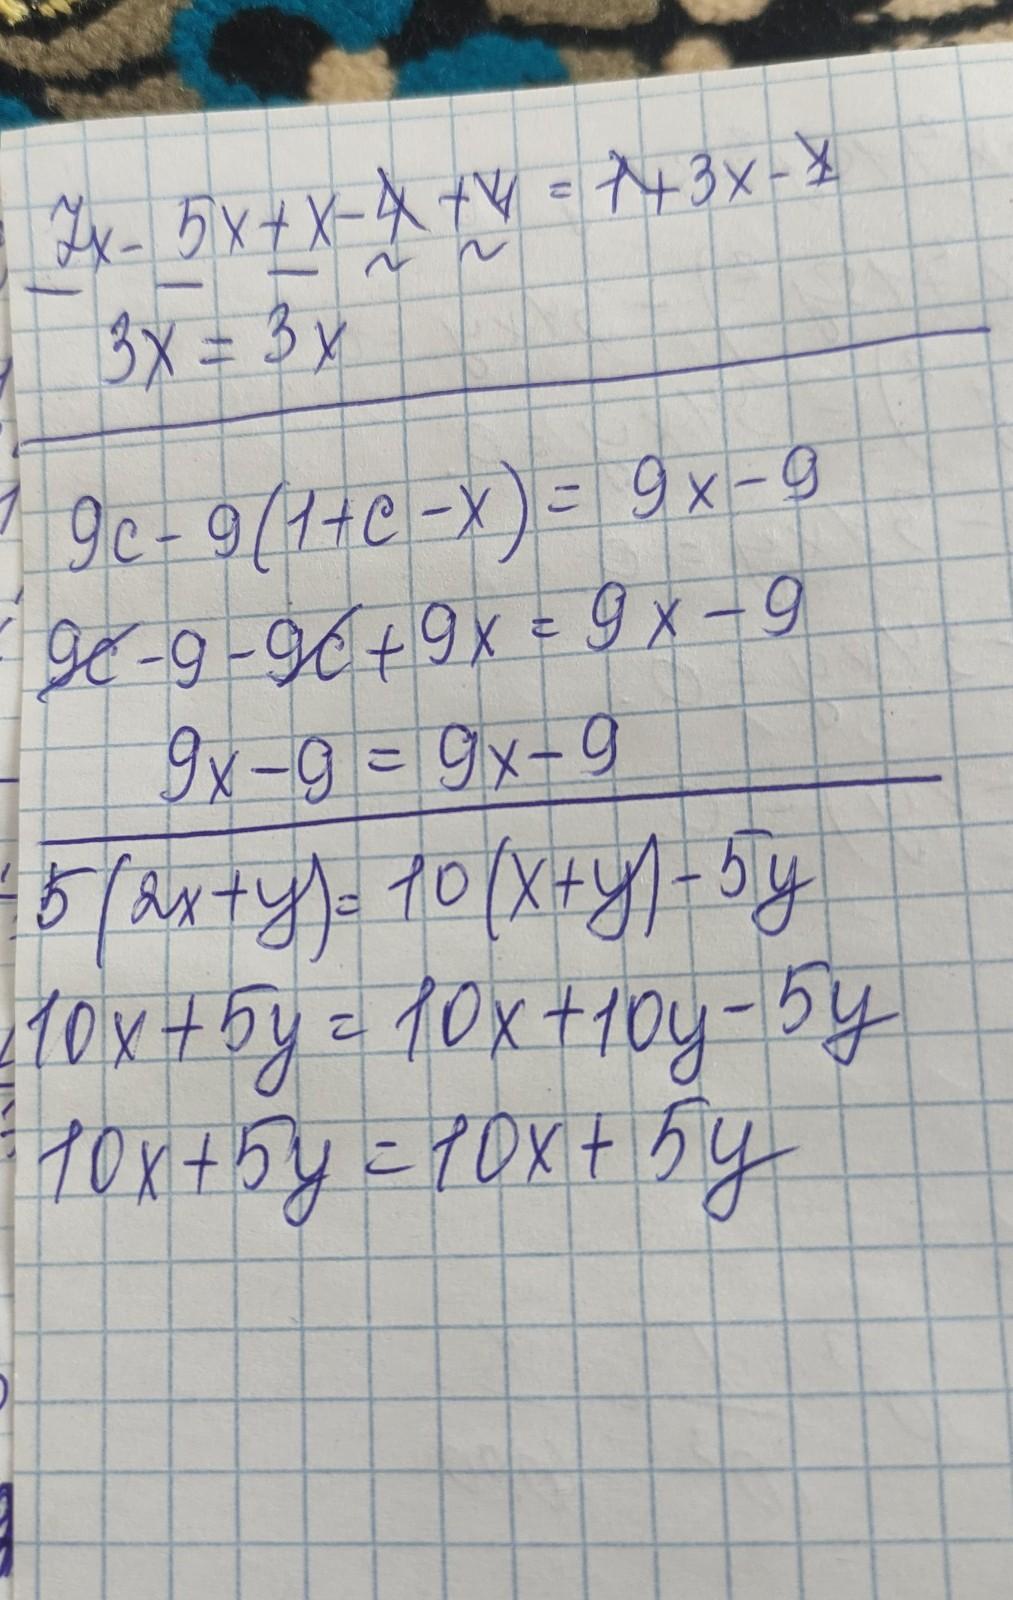 7x - 5x + x - 4 + 4 = 1 + 3x - 1
3x = 3x
9c - 9(1 + c - x) = 9x - 9
9c - 9 - 9c + 9x = 9x - 9
9x - 9 = 9x - 9
5(2x + y) = 10(x + y) - 5y
10x + 5y = 10x + 10y - 5y
10x + 5y = 10x + 5y